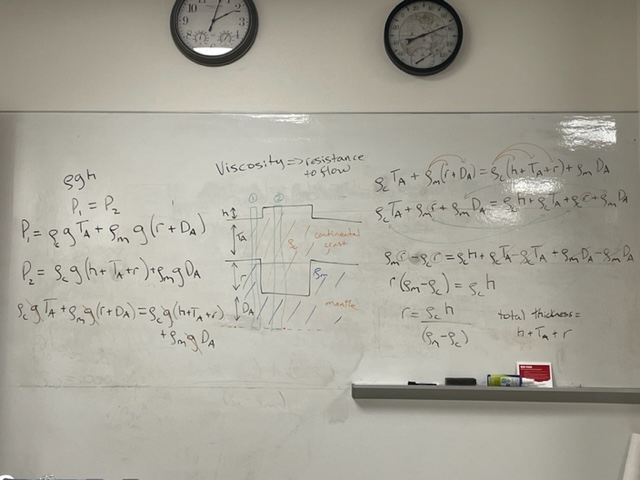 ρgh
P₁ = P₂
P₁ = ρ_c g T_A + ρ_m g (r + D_A)
P₂ = ρ_c g (h + T_A + r) + ρ_m g D_A
ρ_c g T_A + ρ_m g (r + D_A) = ρ_c g (h + T_A + r)
+ ρ_m g D_A
Viscosity => resistance
to flow
① ②
h
T_A
r
D_A
ρ_c
continental
crust
ρ_m
mantle
ρ_c T_A + ρ_m (r + D_A) = ρ_c (h + T_A + r) + ρ_m D_A
ρ_c T_A + ρ_m r + ρ_m D_A = ρ_c h + ρ_c T_A + ρ_c r + ρ_m D_A
ρ_m r - ρ_c r = ρ_c h + ρ_c T_A - ρ_c T_A + ρ_m D_A - ρ_m D_A
r (ρ_m - ρ_c) = ρ_c h
r = ρ_c h
(ρ_m - ρ_c)
total thickness =
h + T_A + r